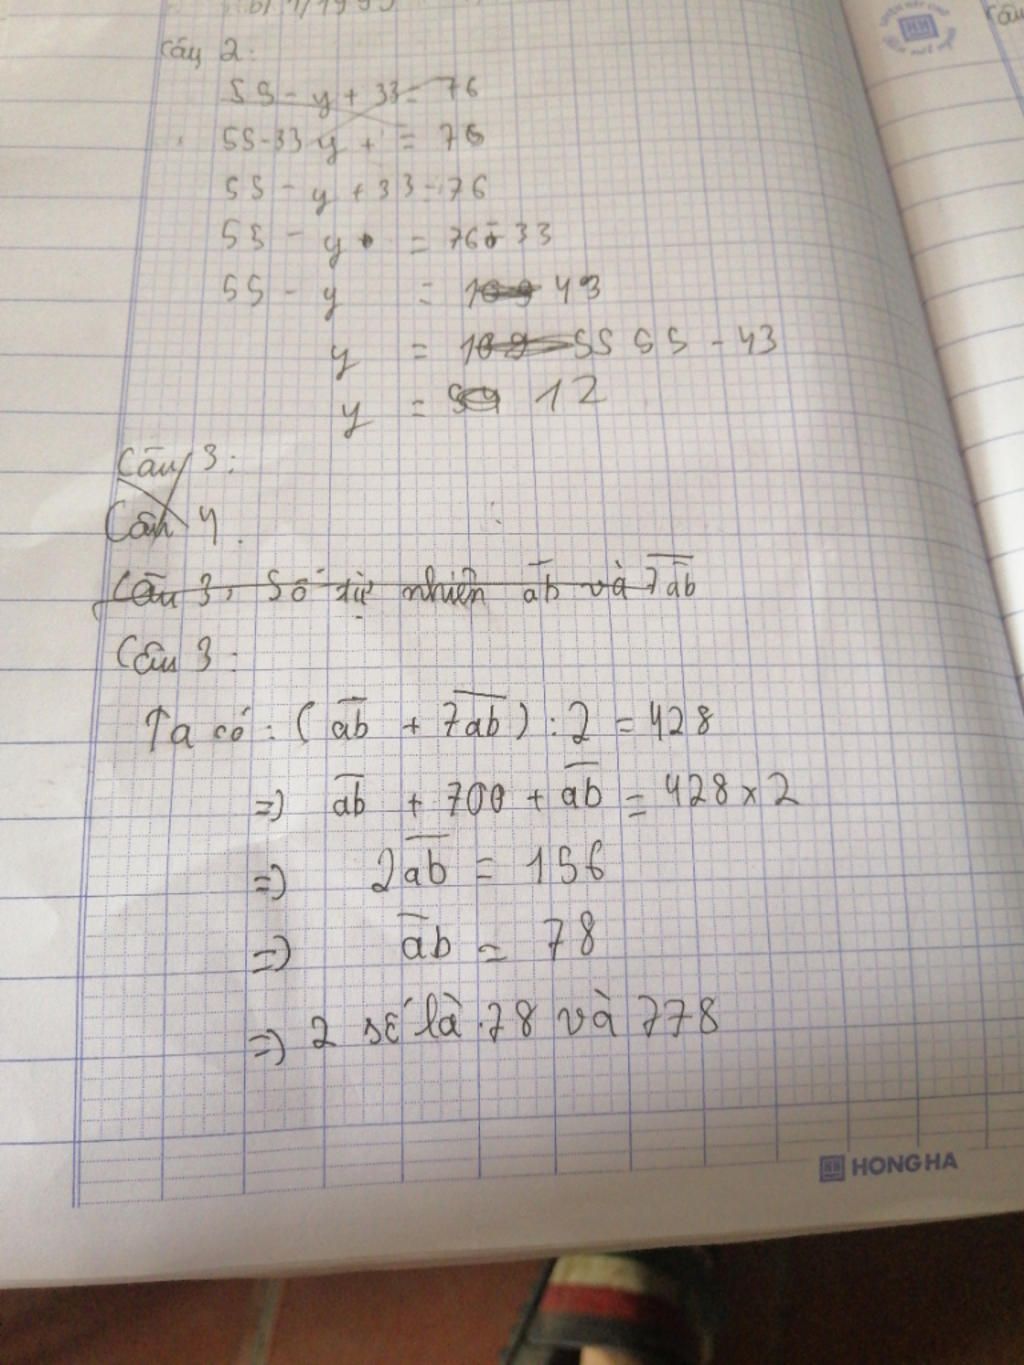 Câu 2:
55 - y + 33 = 76
55 - 33 y + = 76
55 - y + 33 = 76
55 - y = 76 - 33
55 - y = 43
y = 55 - 43
y = 12
Câu 3:
Câu 4
Câu 3: Số tự nhiên ab và 7ab
Câu 3:
Ta có: (ab + 7ab) : 2 = 428
=) ab + 700 + ab = 428 x 2
=) 2ab = 156
=) ab = 78
=) 2 số là 78 và 778
HONG HA